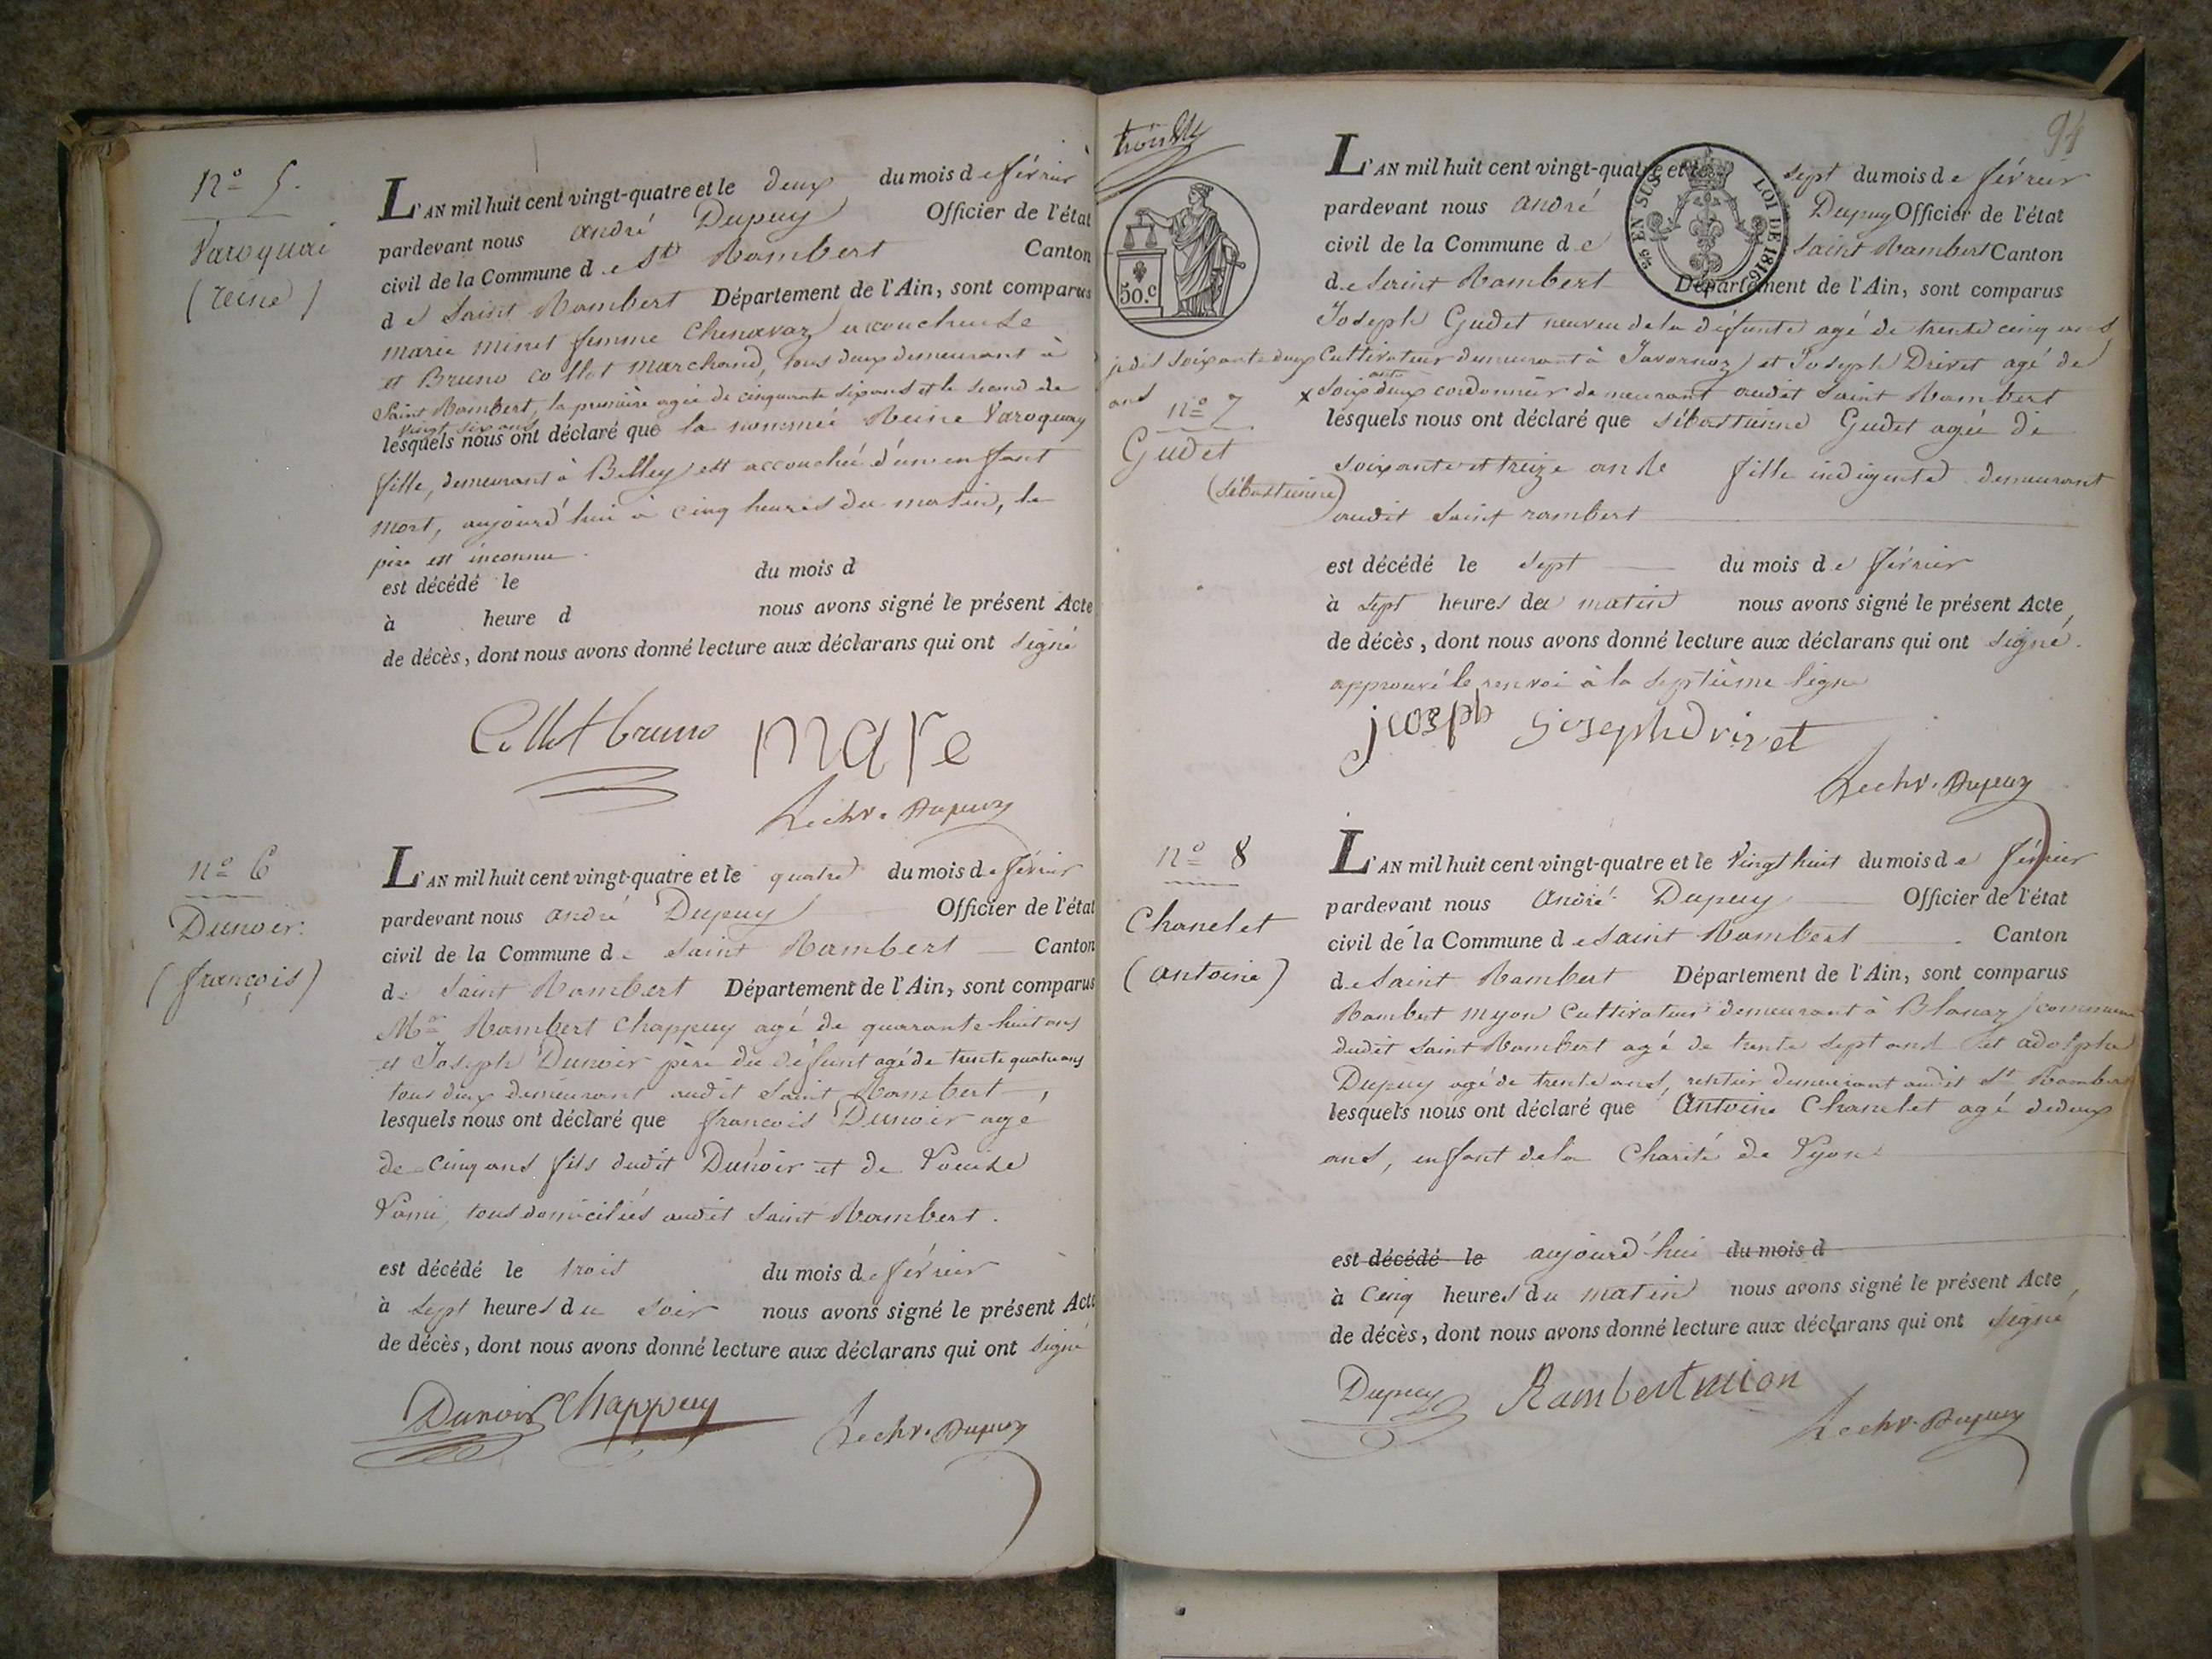 nº 5.
Varoquai
(reine)
L'AN mil huit cent vingt-quatre et le deux du mois de février
pardevant nous andré Dupuy Officier de l'état
civil de la Commune de St Rambert Canton
de Saint Rambert Département de l'Ain, sont comparus
marie minet femme Chenavaz accoucheuse
et Bruno collet marchand, tous deux demeurant à
Saint Rambert, la première agée de cinquante six ans et le second de
vingt six ans
lesquels nous ont déclaré que la nommée Reine Varoquay
fille, demeurant à Belley est accouchée d'un enfant
mort, aujourd'hui à cinq heures du matin, le
père est inconnu
est décédé le du mois d
à heure d nous avons signé le présent Acte
de décès, dont nous avons donné lecture aux déclarans qui ont signé
Collet bruno
Lechv. Dupuy
nº 6
Dunoir
(françois)
L'AN mil huit cent vingt-quatre et le quatre du mois de février
pardevant nous andré Dupuy Officier de l'état
civil de la Commune de Saint Rambert Canton
de Saint Rambert Département de l'Ain, sont comparus
Mr Rambert Chappuy agé de quarante huit ans
et Joseph Dunoir père du défunt agé de trente quatre ans
tous deux demeurant audit Saint Rambert,
lesquels nous ont déclaré que françois Dunoir age
de cinq ans fils dudit Dunoir et de Louise
Lami, tous domiciliés audit Saint Rambert.
est décédé le trois du mois de février
à sept heures du soir nous avons signé le présent Acte
de décès, dont nous avons donné lecture aux déclarans qui ont signé
Dunoir Chappuy
Lechv. Dupuy
94
50.c
EN SUS LOI DE 1816
L'AN mil huit cent vingt-quatre et le sept du mois de février
pardevant nous andré Dupuy Officier de l'état
civil de la Commune de Saint Rambert Canton
de Saint Rambert Département de l'Ain, sont comparus
Joseph Gudet neveu de la défunte agé de trente cinq ans
Cultivateur demeurant à Javornoz et Joseph Drivet agé de
je dis soixante deux
ans
x soixante deux cordonnier demeurant audit Saint Rambert
nº 7
Gudet
(Sébastienne)
lesquels nous ont déclaré que Sébastienne Gudet agée de
soixante et treize ans fille indigente demeurant
audit Saint rambert
est décédé le sept du mois de février
à sept heures du matin nous avons signé le présent Acte
de décès, dont nous avons donné lecture aux déclarans qui ont signé.
approuvé le renvoi à la septième ligne
joseph joseph drivet
Lechv. Dupuy
nº 8
Chanelet
(antoine)
L'AN mil huit cent vingt-quatre et le vingt huit du mois de février
pardevant nous André Dupuy Officier de l'état
civil de la Commune de Saint Rambert Canton
de Saint Rambert Département de l'Ain, sont comparus
Rambert myon Cultivateur demeurant à Blanaz commune
dudit Saint Rambert agé de trente sept ans et adolphe
Dupuy agé de trente ans, rentier demeurant audit St Rambert
lesquels nous ont déclaré que Antoine Chanelet agé de deux
ans, enfant de la Charité de Lyon
est décédé le aujourd'hui du mois d
à cinq heures du matin nous avons signé le présent Acte
de décès, dont nous avons donné lecture aux déclarans qui ont signé
Dupuy Rambert mion
Lechv. Dupuy